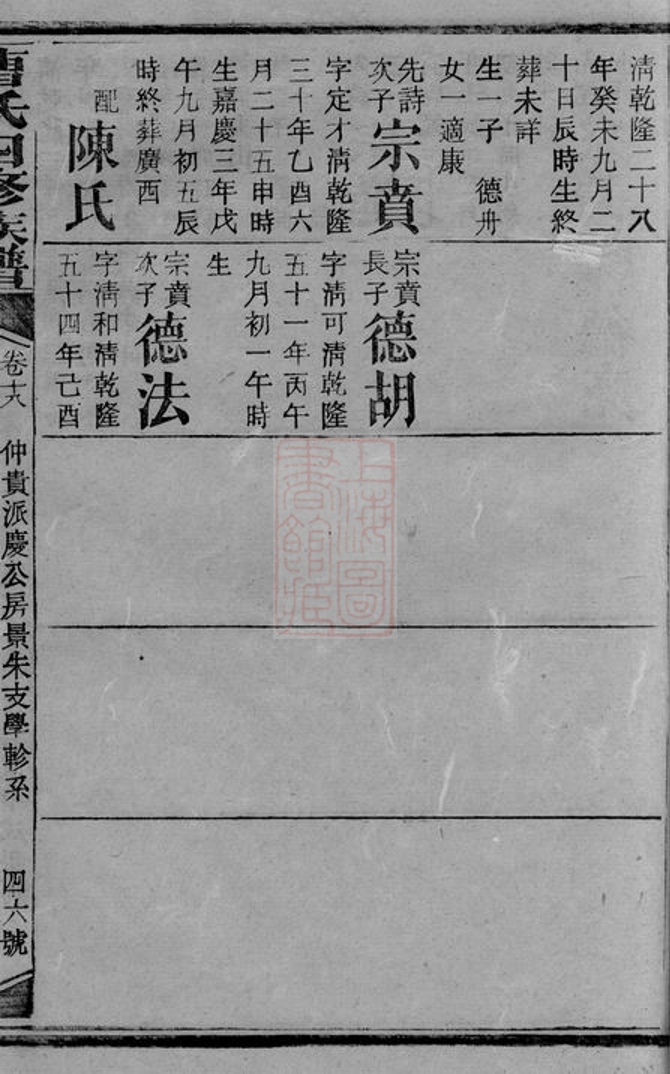 清乾隆二十八
年癸未九月二
十日辰時生終
葬未詳
生一子　德舟
女一適康
先詩
次子
宗賁
字定才清乾隆
三十年乙酉六
月二十五申時
生嘉慶三年戊
午九月初五辰
時終葬廣西
配陳氏
宗賁
長子
德胡
字清可清乾隆
五十一年丙午
九月初一午時
生
宗賁
次子
德法
字清和清乾隆
五十四年己酉
氏四修族譜
卷十八
仲貴派慶公房景朱支學軫系
四六號
上海圖
書館藏